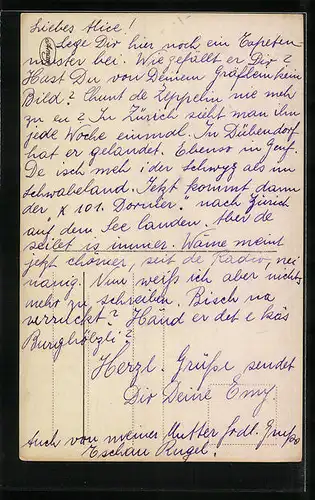 Liebes Alice!
Lege Dir hier noch ein Tapeten
muster bei. Wie gefällt er Dir?
Hast Du von Deinem Gräflein kein
Bild? Chunt de Zeppelin nie meh
zu eu? In Zürich sieht man ihn
jede Woche einmal. In Dübendorf
hat er gelandet. Ebenso in Genf.
De isch meh i der Schwyz als im
Schwabeland. Jetzt kommt dann
der "X 101. Dornier." nach Zürich
auf dem See landen. Aber de
seilet is immer. Wäme meint
jetzt chömer, seit de Radio, nei
nänig. Nun weiß ich aber nichts
mehr zu schreiben. Bisch na
verruckt? Händ er det e käs
Burghölzli?
Herzl. Grüße sendet
Dir Deine Emy.
Auch von meiner Mutter frdl. Gruß
Eschau Rugel!